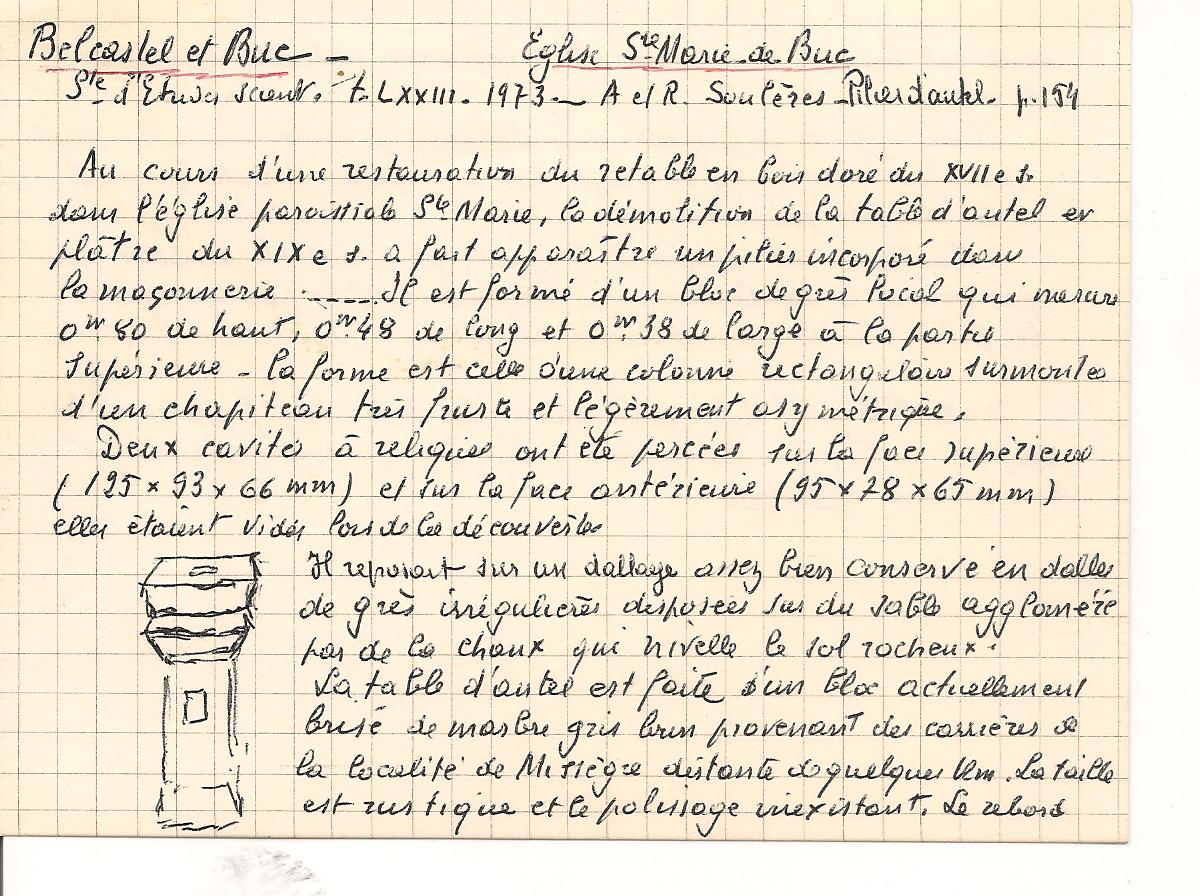 Belcastel et Buc — Eglise Ste Marie de Buc
Sté d'Etudes scient. t. LXXIII. 1973 — A et R. Soulères - Pilier d'autel. p. 154
Au cours d'une restauration du retable en bois doré du XVIIe s.
dans l'église paroissiale Ste Marie, la démolition de la table d'autel en
plâtre du XIXe s. a fait apparaître un pilier incorporé dans
la maçonnerie ..... Il est formé d'un bloc de grès local qui mesure
0m.80 de haut, 0m.48 de long et 0m.38 de large à la partie
supérieure - la forme est celle d'une colonne rectangulaire surmontée
d'un chapiteau très fruste et légèrement asymétrique.
Deux cavités à reliques ont été percées sur la face supérieure
(125 x 93 x 66 mm) et sur la face antérieure (95 x 78 x 65 mm)
elles étaient vides lors de la découverte
Il reposait sur un dallage assez bien conservé en dalles
de grès irrégulières disposées sur du sable aggloméré
par de la chaux qui nivelle le sol rocheux.
La table d'autel est faite d'un bloc actuellement
brisé de marbre gris brun provenant des carrières de
la localité de Missègre distante de quelques km. La taille
est rustique et le polissage inexistant. Le rebord